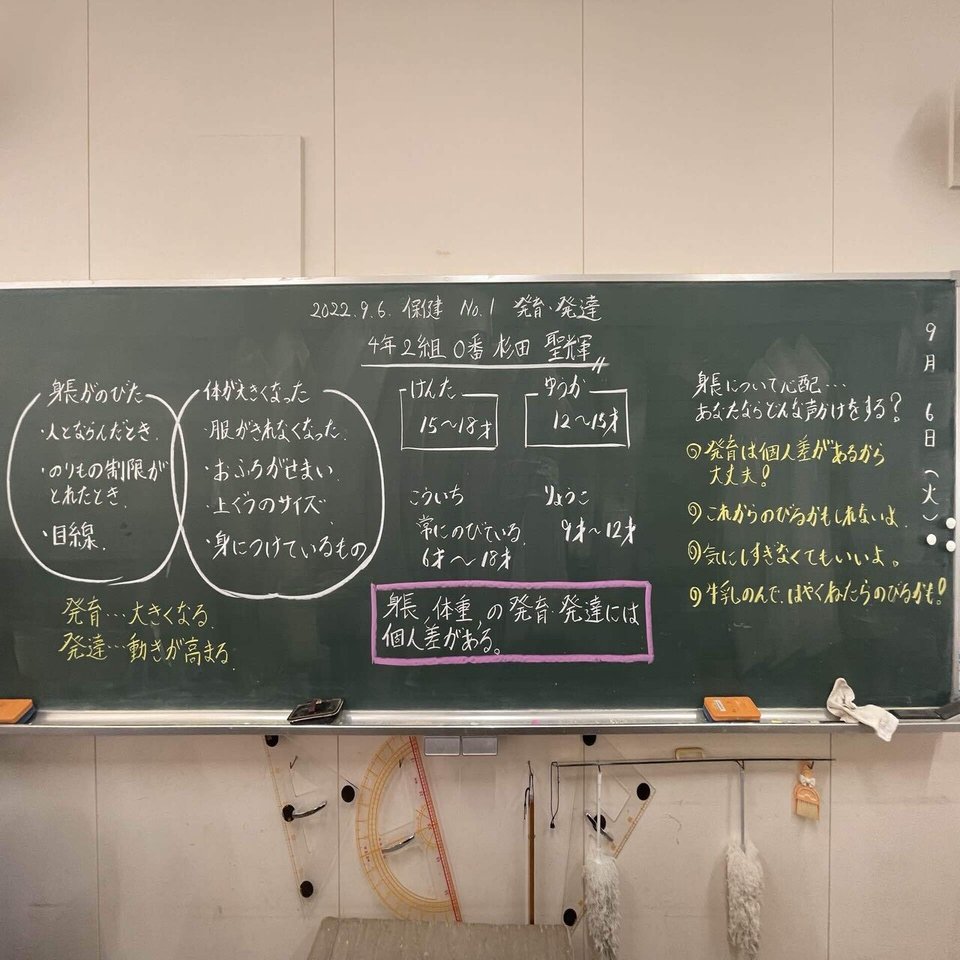 2022.9.6. 保健 No.1 発育・発達
4年2組 0番 杉田 聖輝
身長がのびた
・人とならんだとき.
・のりもの制限が
とれたとき.
・目線.
体が大きくなった
・服がきれなくなった.
・おふろがせまい.
・上ぐつのサイズ.
・身につけているもの
発育…大きくなる.
発達…動きが高まる.
けんた
15〜18才
ゆうか
12〜15才
こういち
常にのびている.
6才〜18才
りょうこ
9才〜12才
身長,体重,の発育・発達には
個人差がある。
身長について心配…
あなたならどんな声かけをする?
発育は個人差があるから
大丈夫!
これからのびるかもしれないよ.
気にしすぎなくてもいいよ。
牛乳のんで、はやくねたらのびるかも!
9月6日(火)